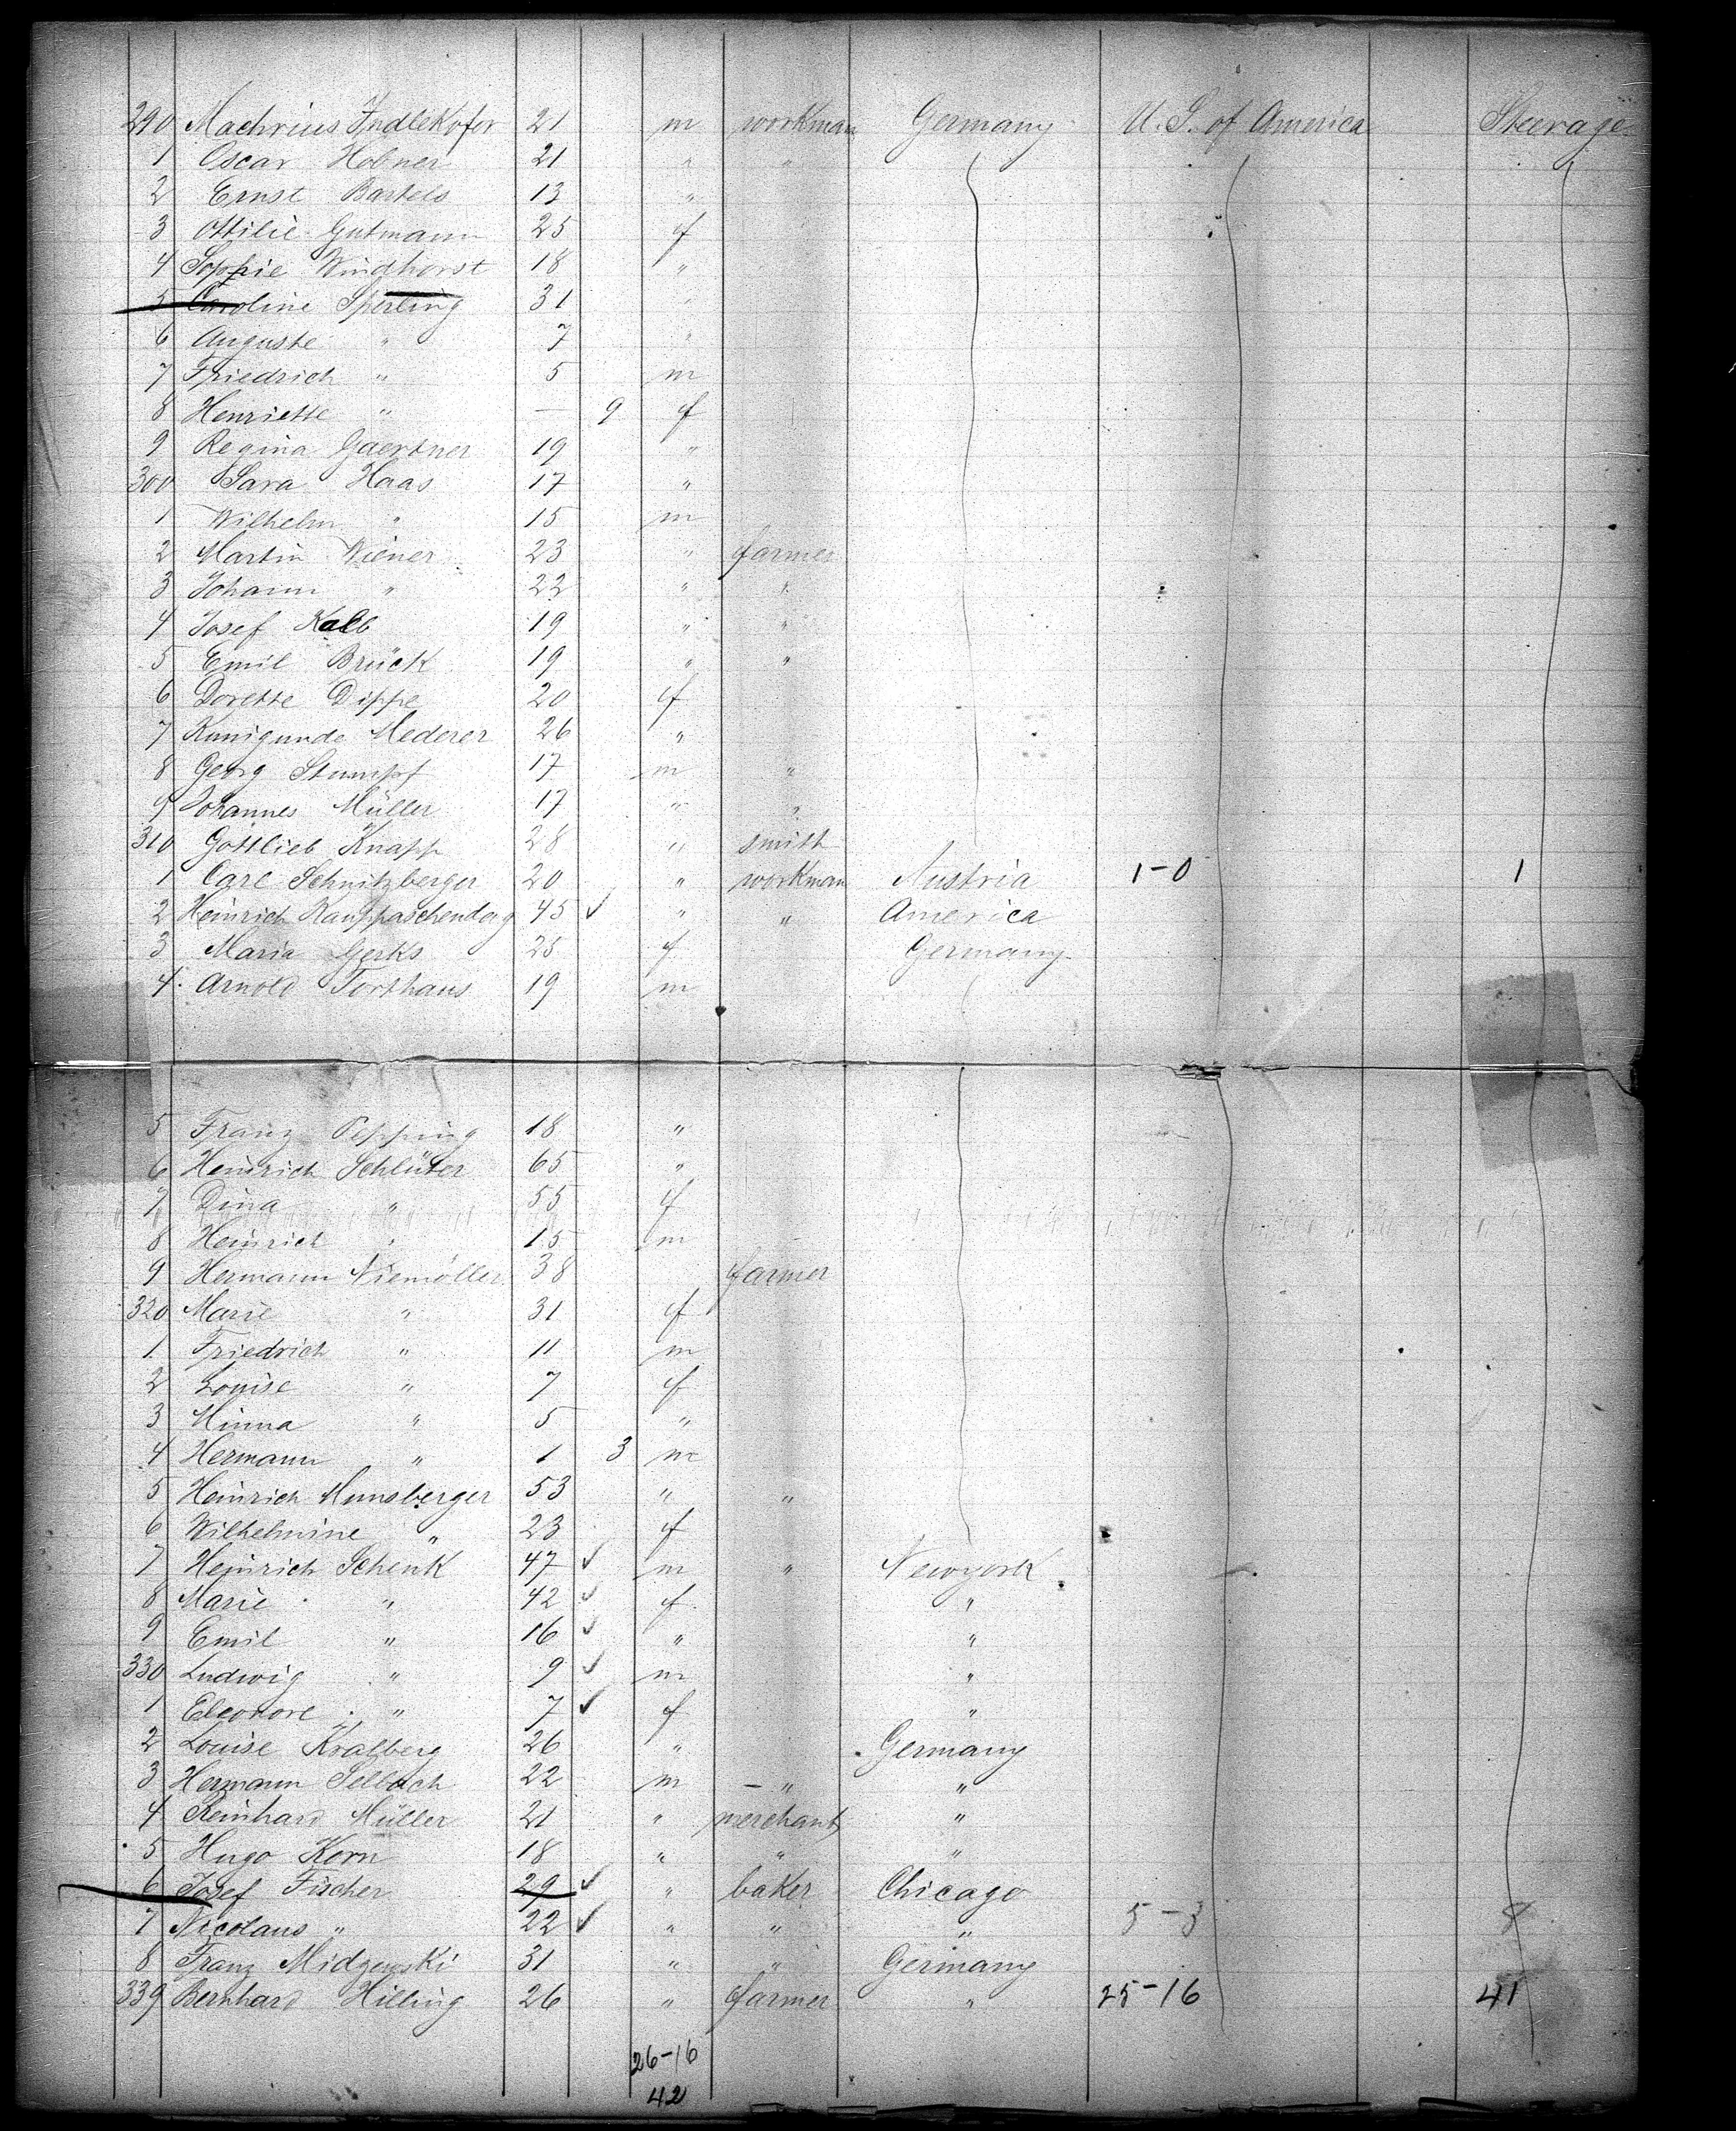 290 Machrius Indlekofer 21 m workman Germany U. S. of America Steerage
1 Oscar Hobner 21 " "
2 Ernst Bartels 13 "
3 Ottilie Gutmann 25 f
4 Sophie Windhorst 18 "
5 Caroline Sperling 31 "
6 Auguste " 7 "
7 Friedrich " 5 m
8 Henriette " — 9 f
9 Regina Gaertner 19 "
300 Sara Haas 17 "
1 Wilhelm " 15 m
2 Martin Wiener 23 " farmer
3 Johann " 22 " "
4 Josef Kalb 19 " "
5 Emil Brück 19 " "
6 Dorette Dippe 20 f
7 Kunigunde Mederer 26 "
8 Georg Stumpf 17 m "
9 Johannes Müller 17 " "
310 Gottlieb Knapp 28 " smith
1 Carl Schnitzberger 20 " workman Austria 1-0 1
2 Heinrich 45 ✓ " " America
3 Maria Gerks 25 f Germany
4 Arnold Forthaus 19 m
5 Franz Pepping 18 "
6 Heinrich Schlüter 65 "
7 Dina " 55 f
8 Heinrich " 15 m
9 Hermann Niemöller 38 farmer
320 Marie " 31 f
1 Friedrich " 11 m
2 Louise " 7 f
3 Minna " 5 "
4 Hermann " 1 3 m
5 Heinrich Munsberger 53 " "
6 Wilhelmine " 23 f
7 Heinrich Schenk 47 ✓ m " Newyork
8 Marie " 42 ✓ f "
9 Emil " 16 ✓ " "
330 Ludwig " 9 ✓ m "
1 Eleonore " 7 ✓ f "
2 Louise Kralberg 26 " Germany
3 Hermann Selbach 22 m — " "
4 Reinhard Müller 21 " merchant "
5 Hugo Korn 18 " " "
6 Josef Fischer 29 ✓ " baker Chicago
7 Nicolaus " 22 ✓ " " " 5-3 8
8 Franz Midzewski 31 " " Germany
339 Bernhard Hilling 26 " farmer " 25-16 41
26-16
42